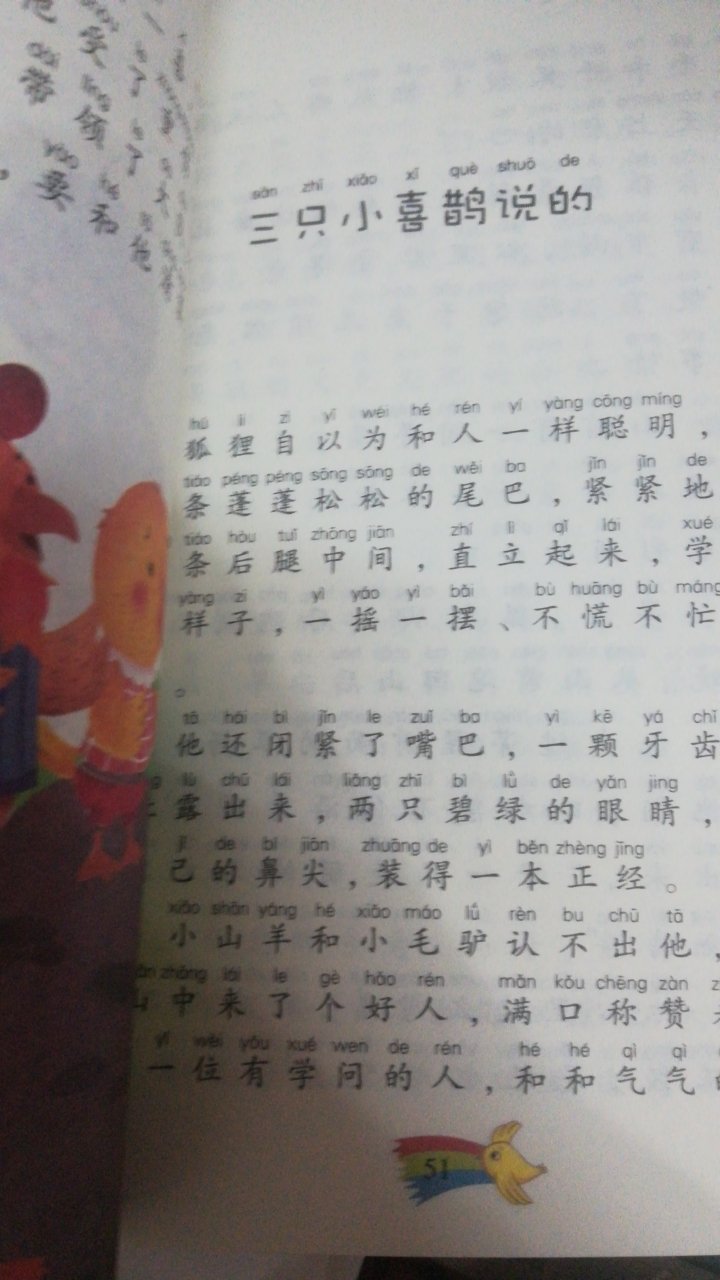 sān zhī xiǎo xǐ què shuō de
三只小喜鹊说的
hú li zì yǐ wéi hé rén yí yàng cōng míng
狐狸自以为和人一样聪明，
tiáo péng péng sōng sōng de wěi ba jǐn jǐn de
条蓬蓬松松的尾巴，紧紧地
tiáo hòu tuǐ zhōng jiān zhí lì qǐ lái xué
条后腿中间，直立起来，学
yàng zi yì yáo yì bǎi bù huāng bù máng
样子，一摇一摆、不慌不忙
。
tā hái bì jǐn le zuǐ ba yì kē yá chǐ
他还闭紧了嘴巴，一颗牙齿
lù chū lái liǎng zhī bì lǜ de yǎn jing
露出来，两只碧绿的眼睛，
jǐ de bí jiān zhuāng de yì běn zhèng jīng
己的鼻尖，装得一本正经。
xiǎo shān yáng hé xiǎo máo lǘ rèn bu chū tā
小山羊和小毛驴认不出他，
zhōng lái le gè hǎo rén mǎn kǒu chēng zàn
山中来了个好人，满口称赞
yí wèi yǒu xué wen de rén hé hé qì qì
一位有学问的人，和和气气
51